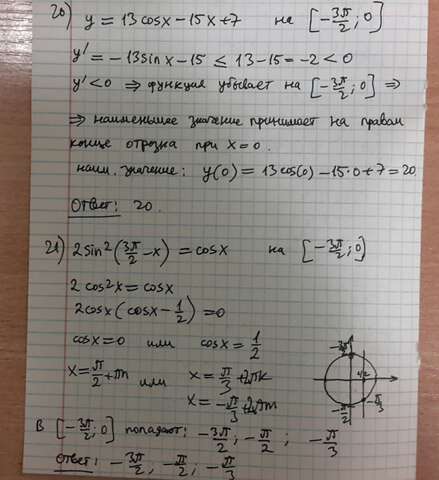 20) y = 13cosx − 15x + 7 на [−3π/2; 0]
y' = −13sinx − 15 ≤ 13 − 15 = −2 < 0
y' < 0 ⇒ функция убывает на [−3π/2; 0] ⇒
⇒ наименьшее значение принимает на правом
конце отрезка при x = 0.
наим. значение: y(0) = 13cos(0) − 15·0 + 7 = 20
Ответ: 20.
21) 2sin²(3π/2 − x) = cosx на [−3π/2; 0]
2cos²x = cosx
2cosx(cosx − 1/2) = 0
cosx = 0 или cosx = 1/2
x = π/2 + πn или x = π/3 + 2πk
x = −π/3 + 2πm
−3π/2
1/2
−π/3
−π/2
В [−3π/2; 0] попадают: −3π/2; −π/2; −π/3
Ответ: −3π/2; −π/2; −π/3